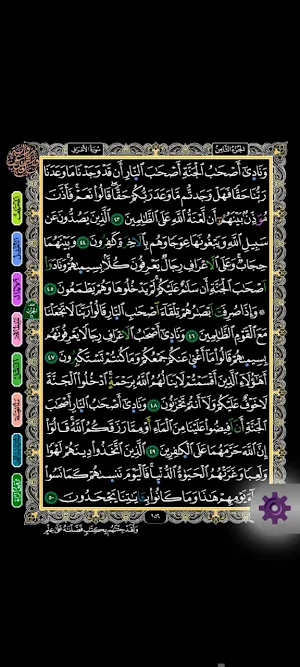 الجزء الثامن
سورة الأعراف
وَنَادَىٰٓ أَصْحَٰبُ ٱلْجَنَّةِ أَصْحَٰبَ ٱلنَّارِ أَن قَدْ وَجَدْنَا مَا وَعَدَنَا
رَبُّنَا حَقًّا فَهَلْ وَجَدتُّم مَّا وَعَدَ رَبُّكُمْ حَقًّا قَالُوا۟ نَعَمْ فَأَذَّنَ
مُؤَذِّنٌۢ بَيْنَهُمْ أَن لَّعْنَةُ ٱللَّهِ عَلَى ٱلظَّٰلِمِينَ ٤٤ ٱلَّذِينَ يَصُدُّونَ عَن
سَبِيلِ ٱللَّهِ وَيَبْغُونَهَا عِوَجًا وَهُم بِٱلْءَاخِرَةِ كَٰفِرُونَ ٤٥ وَبَيْنَهُمَا
حِجَابٌ وَعَلَى ٱلْأَعْرَافِ رِجَالٌ يَعْرِفُونَ كُلًّۢا بِسِيمَىٰهُمْ وَنَادَوْا۟
أَصْحَٰبَ ٱلْجَنَّةِ أَن سَلَٰمٌ عَلَيْكُمْ لَمْ يَدْخُلُوهَا وَهُمْ يَطْمَعُونَ
۞ وَإِذَا صُرِفَتْ أَبْصَٰرُهُمْ تِلْقَآءَ أَصْحَٰبِ ٱلنَّارِ قَالُوا۟ رَبَّنَا لَا تَجْعَلْنَا
مَعَ ٱلْقَوْمِ ٱلظَّٰلِمِينَ وَنَادَىٰٓ أَصْحَٰبُ ٱلْأَعْرَافِ رِجَالًا يَعْرِفُونَهُم
بِسِيمَىٰهُمْ قَالُوا۟ مَآ أَغْنَىٰ عَنكُمْ جَمْعُكُمْ وَمَا كُنتُمْ تَسْتَكْبِرُونَ
أَهَٰٓؤُلَآءِ ٱلَّذِينَ أَقْسَمْتُمْ لَا يَنَالُهُمُ ٱللَّهُ بِرَحْمَةٍ ٱدْخُلُوا۟ ٱلْجَنَّةَ
لَا خَوْفٌ عَلَيْكُمْ وَلَآ أَنتُمْ تَحْزَنُونَ وَنَادَىٰٓ أَصْحَٰبُ ٱلنَّارِ أَصْحَٰبَ
ٱلْجَنَّةِ أَنْ أَفِيضُوا۟ عَلَيْنَا مِنَ ٱلْمَآءِ أَوْ مِمَّا رَزَقَكُمُ ٱللَّهُ قَالُوٓا۟
إِنَّ ٱللَّهَ حَرَّمَهُمَا عَلَى ٱلْكَٰفِرِينَ ٱلَّذِينَ ٱتَّخَذُوا۟ دِينَهُمْ لَهْوًا
وَلَعِبًا وَغَرَّتْهُمُ ٱلْحَيَوٰةُ ٱلدُّنْيَا فَٱلْيَوْمَ نَنسَىٰهُمْ كَمَا نَسُوا۟
لِقَآءَ يَوْمِهِمْ هَٰذَا وَمَا كَانُوا۟ بِـَٔايَٰتِنَا يَجْحَدُونَ
١٥٦
وَلَقَدْ جِئْنَٰهُم بِكِتَٰبٍ فَصَّلْنَٰهُ عَلَىٰ عِلْمٍ